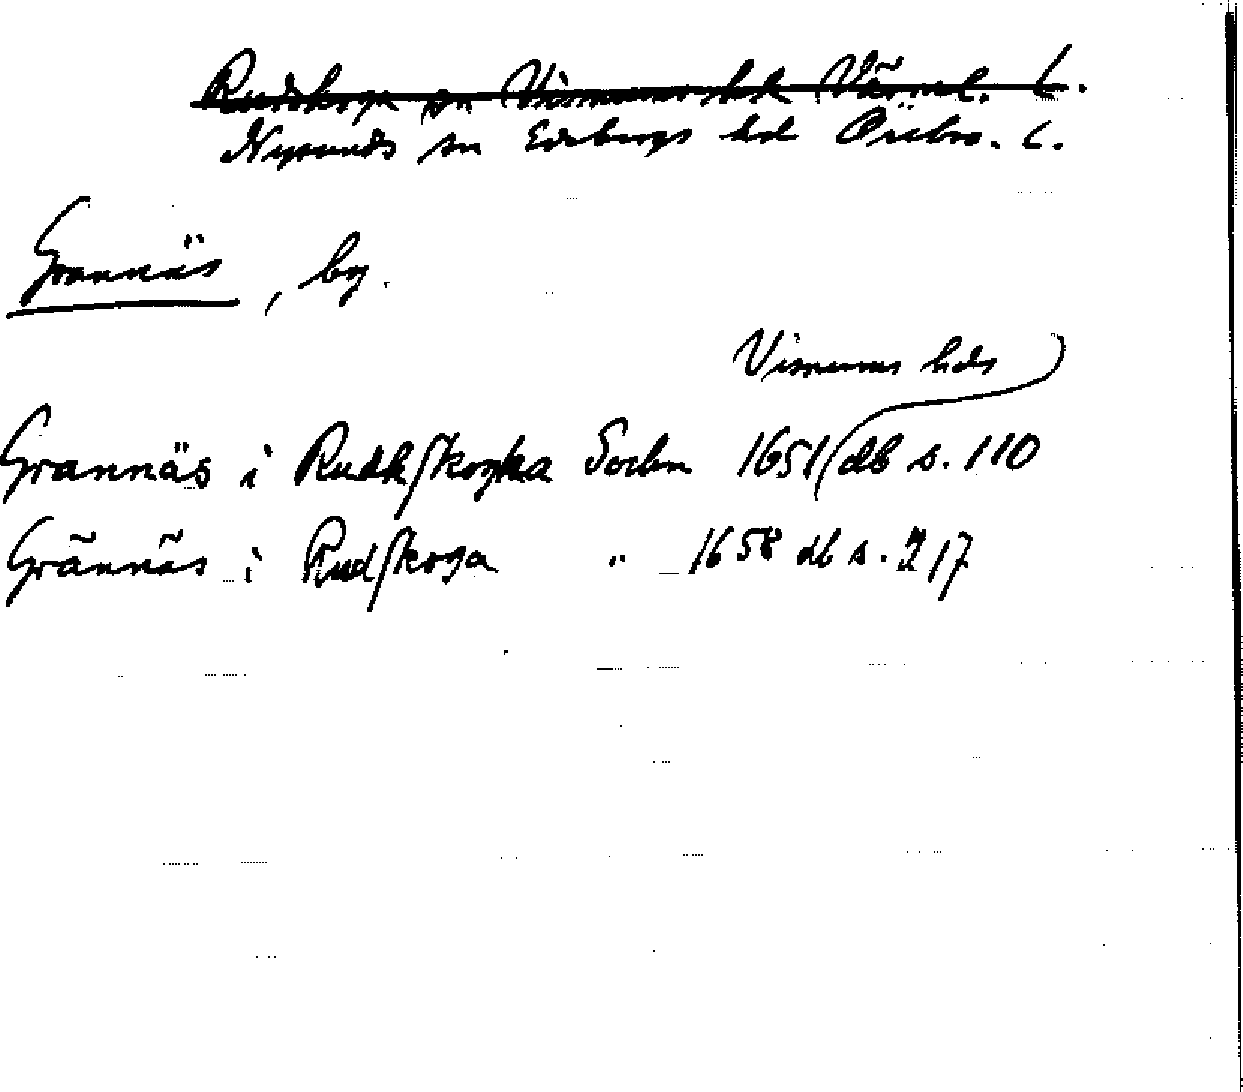 Rudskoga sn Visnums hd Värml. L.
Nysunds sn Edsbergs hd Örebro. L.
Grannäs, by.
Visnums hds
Grannäs i Rudhskogha Sochn 1651 db s. 110
Grännäs i Rudskoga " 1658 db s. 217